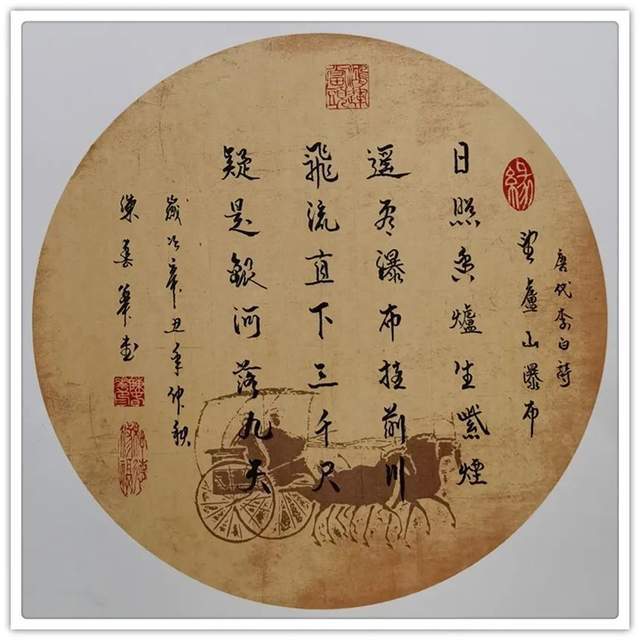 唐代李白詩
望廬山瀑布
緣
日照香爐生紫煙
遥看瀑布挂前川
飛流直下三千尺
疑是銀河落九天
歲次辛丑年仲秋
華書